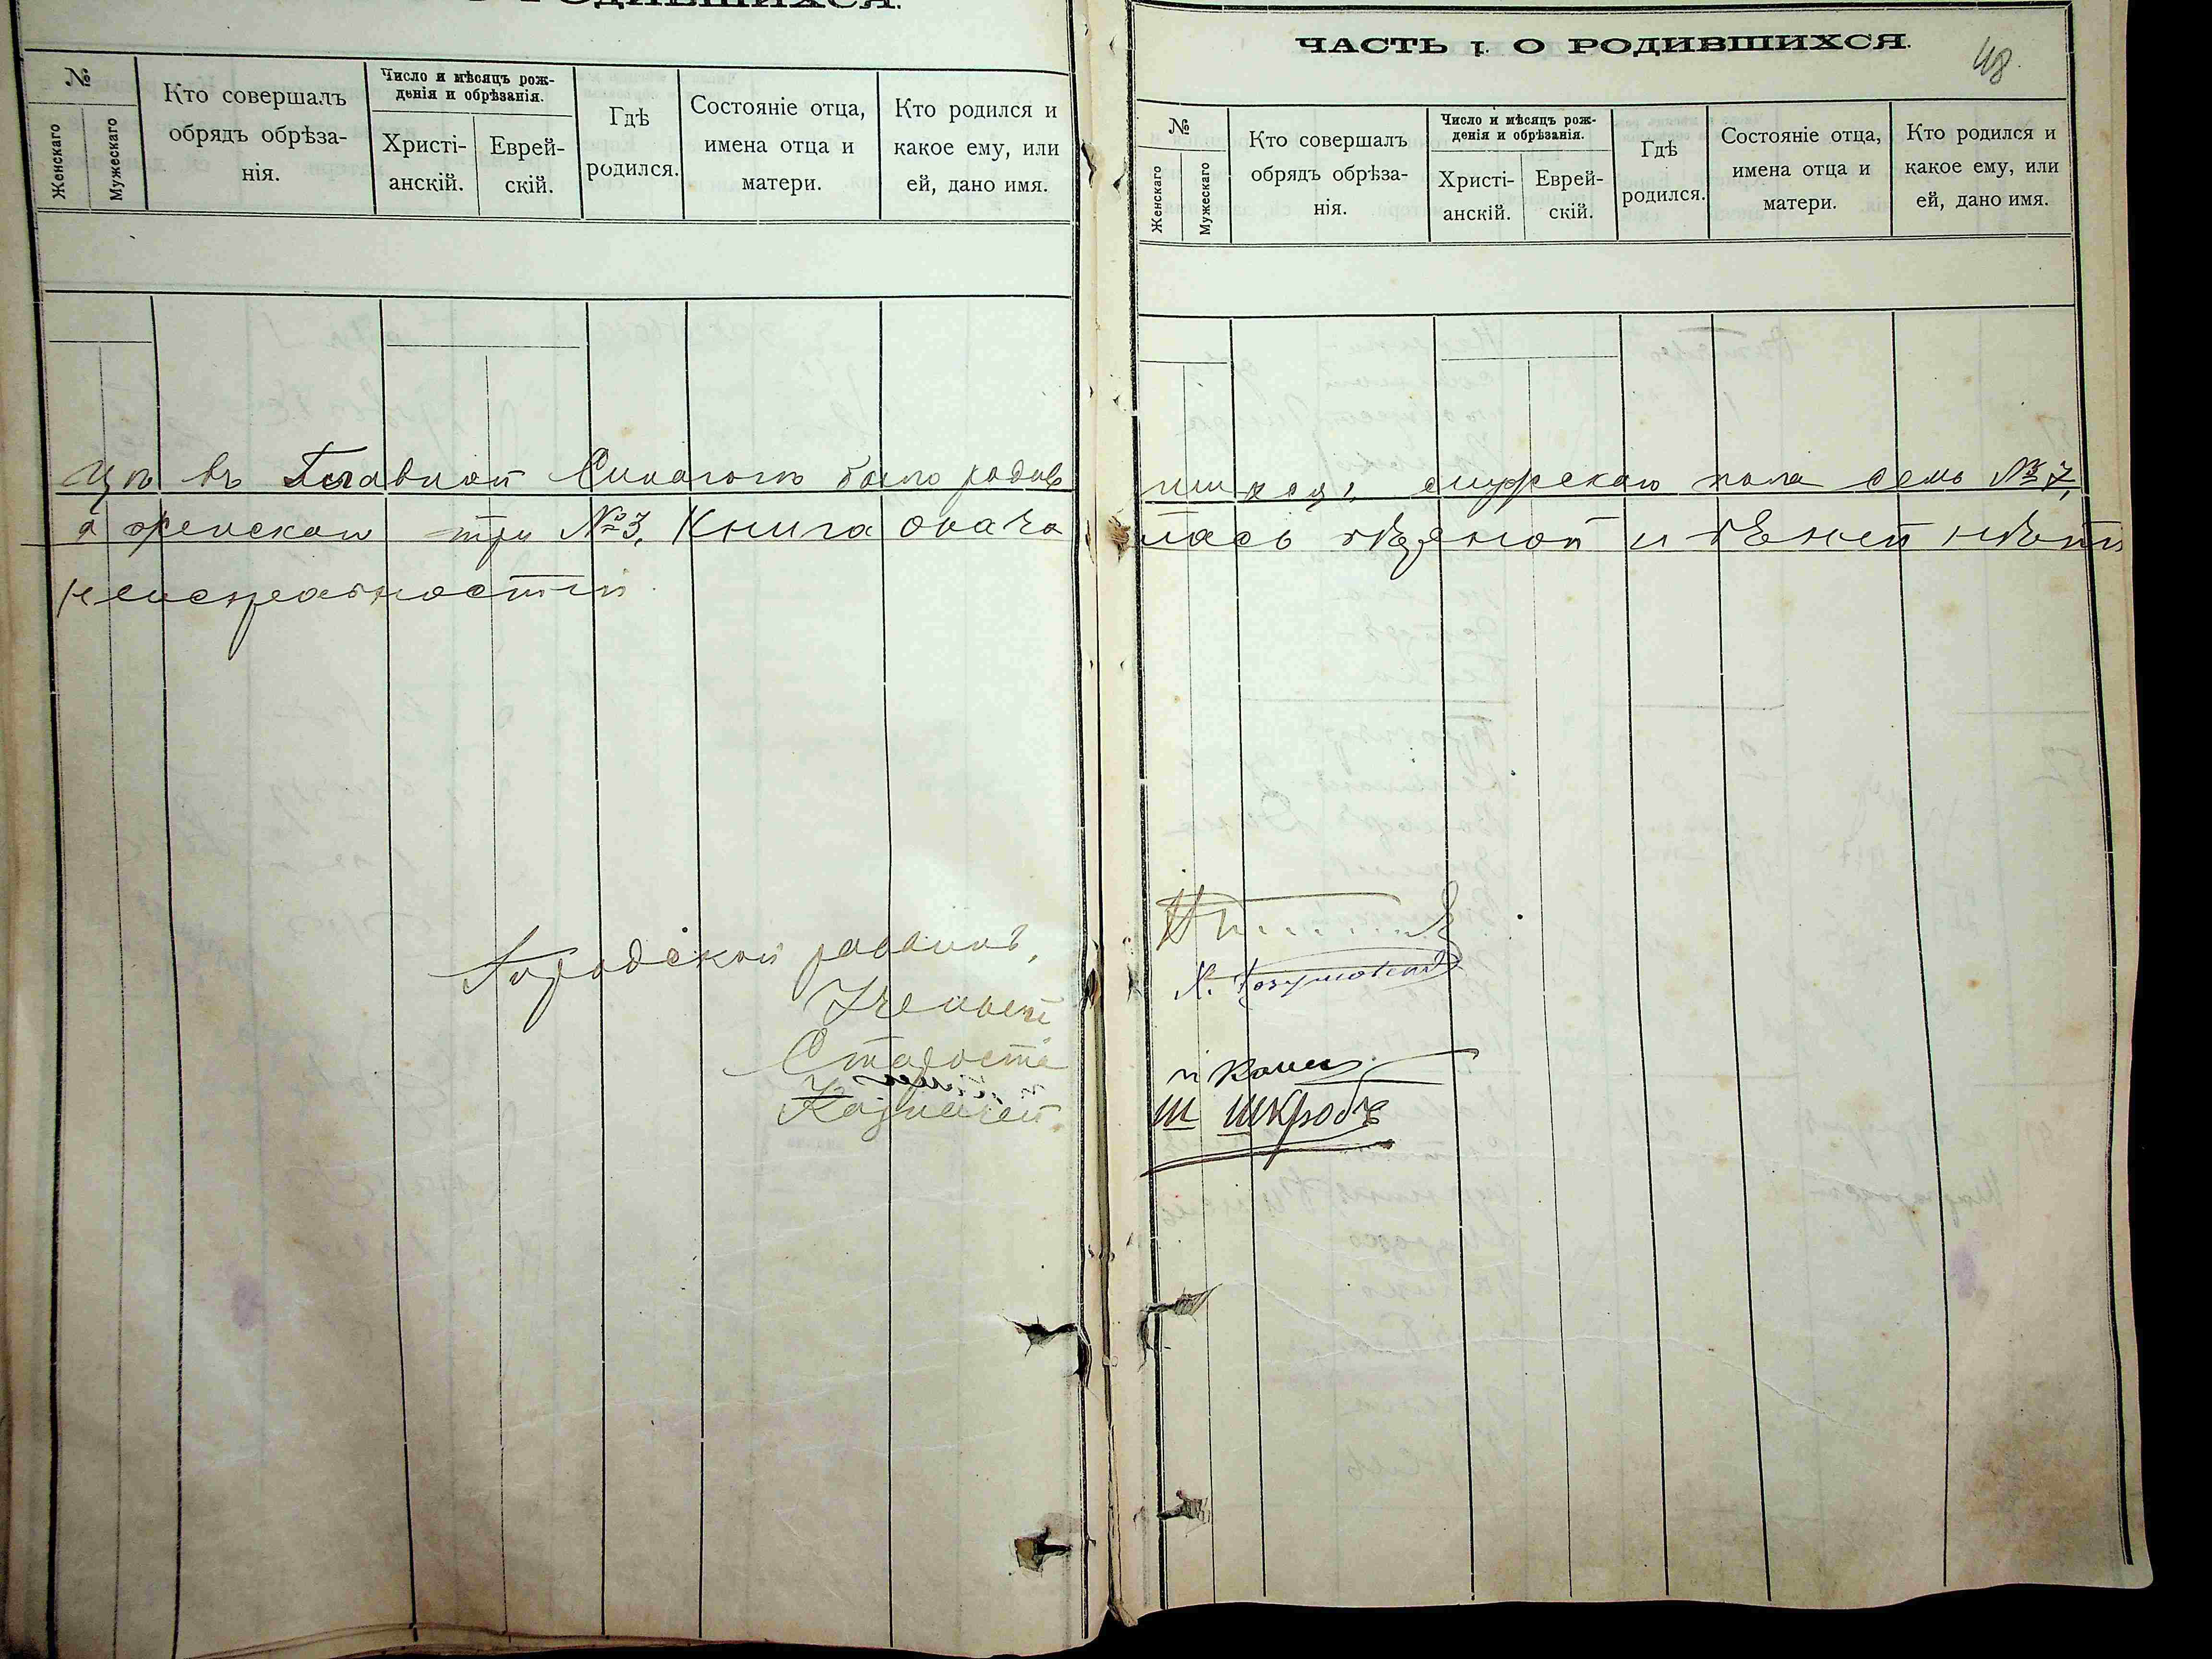 О РОДИВШИХСЯ.
№
Женскаго
Мужескаго
Кто совершалъ
обрядъ обрѣза-
нія.
Число и мѣсяцъ рож-
денія и обрѣзанія.
Христі-
анскій.
Еврей-
скій.
Гдѣ
родился.
Состояніе отца,
имена отца и
матери.
Кто родился и
какое ему, или
ей, дано имя.
ЧАСТЬ I. О РОДИВШИХСЯ.
48.
№
Женскаго
Мужескаго
Кто совершалъ
обрядъ обрѣза-
нія.
Число и мѣсяцъ рож-
денія и обрѣзанія.
Христі-
анскій.
Еврей-
скій.
Гдѣ
родился.
Состояніе отца,
имена отца и
матери.
Кто родился и
какое ему, или
ей, дано имя.
въ Главной Синагогѣ было родив шихся, мужскаго пола семь № 7,
а женскаго три № 3. Книга оказа лась вѣрной и въ ней нѣтъ
неисправностей.
Городской раввинъ,
Ученый
Х. Разумовскій
Староста
Казначей
Ш Шкробъ